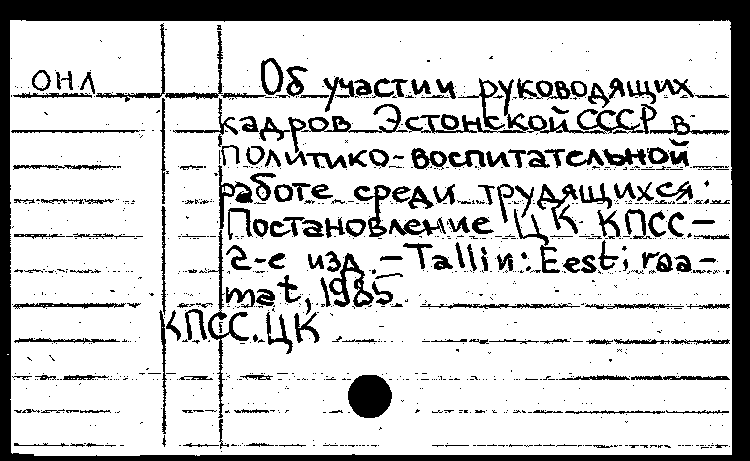 ОНЛ
Об участии руководящих
кадров Эстонской СССР в
политико-воспитательной
работе среди трудящихся:
Постановление ЦК КПСС.—
2-е изд.—Tallin: Eesti raa-
mat, 1985
КПСС.ЦК